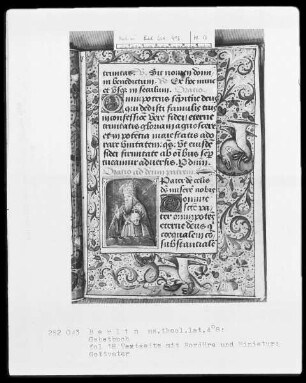 trinitas. V. Sit nomen domi
ni benedictum. R. Ex hoc nunc
et usq; in seculum. Oratio
Omnipotens sempiterne deus
qui dedisti famulis tuis
in confessione vere fidei eterne
trinitatis gloriam agnoscere
et in potentia maiestatis ado
rare unitatem. qs. ut eiusdem
fidei firmitate ab oibus semp
muniamur adversis. P dnm
Oratio ad deum patrem
Pater de celis
deus miserere nobis
Domine
sancte pa
ter omnipotens
eterne deus q
coequalem co
substantialem
292 043 Berlin ms.theol.lat.
Gebetbuch
fol 18 Textseite mit Bordüre und Miniatur
Gottvater